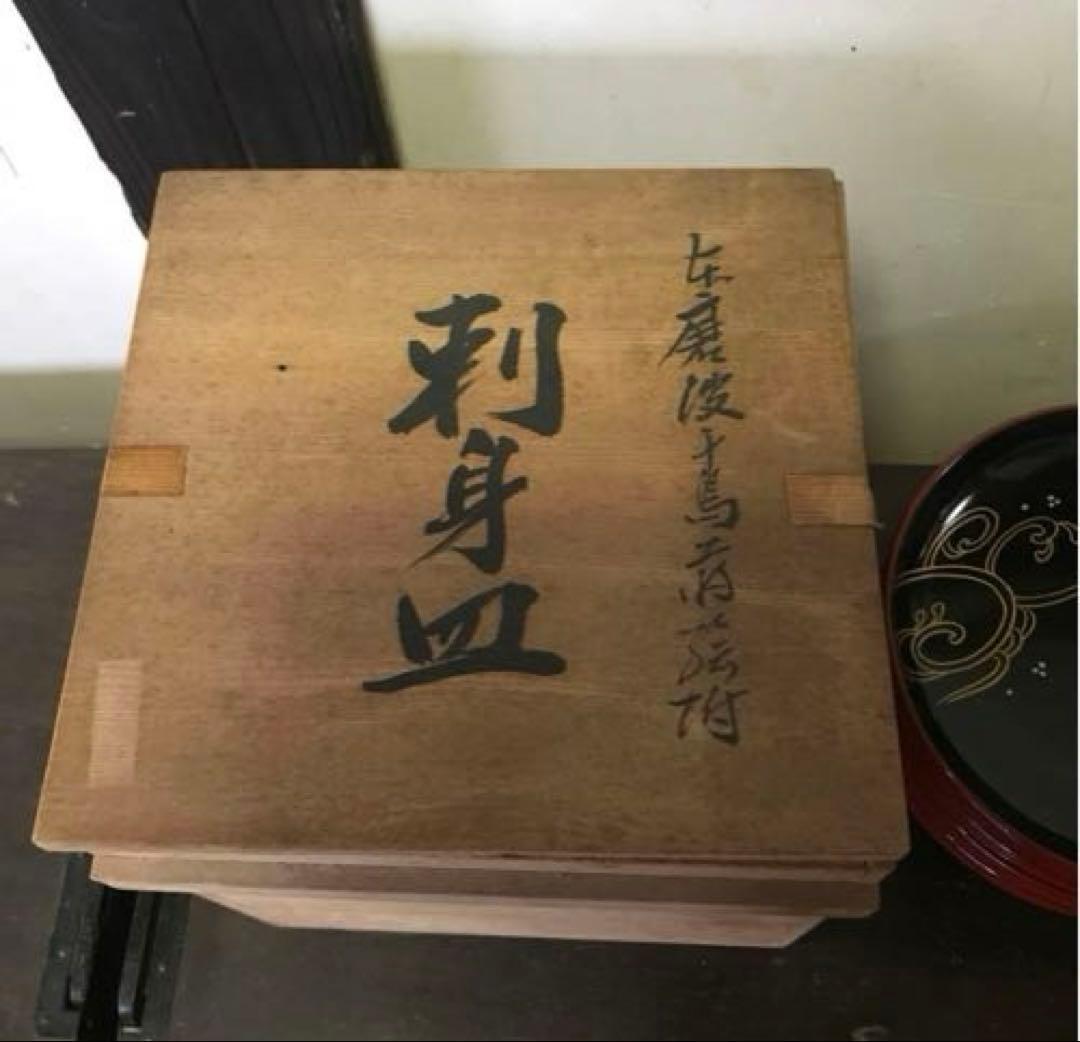 磨波千鳥蒔絵附
刺身皿